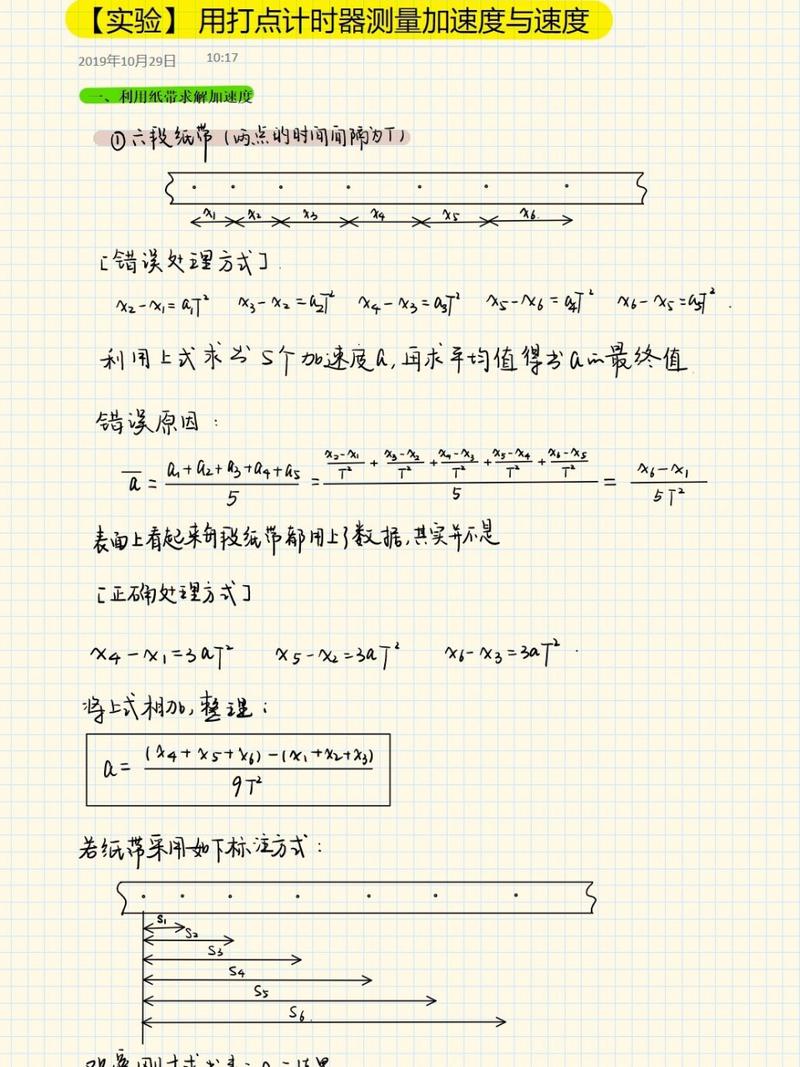 【实验】用打点计时器测量加速度与速度
2019年10月29日 10:17
一、利用纸带求解加速度
①六段纸带（两点的时间间隔为T）
x1 x2 x3 x4 x5 x6
[错误处理方式].
x2-x1=a1T² x3-x2=a2T² x4-x3=a3T² x5-x6=a4T² x6-x5=a5T².
利用上式求出5个加速度a,再求平均值得出a的最终值
错误原因：
a̅ = (a1+a2+a3+a4+a5)/5 = ((x2-x1)/T² + (x3-x2)/T² + (x4-x3)/T² + (x5-x4)/T² + (x6-x5)/T²)/5 = (x6-x1)/5T²
表面上看起来每段纸带都用上了数据,其实并不是
[正确处理方式]
x4-x1=3aT² x5-x2=3aT² x6-x3=3aT².
将上式相加,整理：
a= ((x4+x5+x6)-(x1+x2+x3))/9T²
若纸带采用如下标注方式：
S1
S2
S3
S4
S5
S6